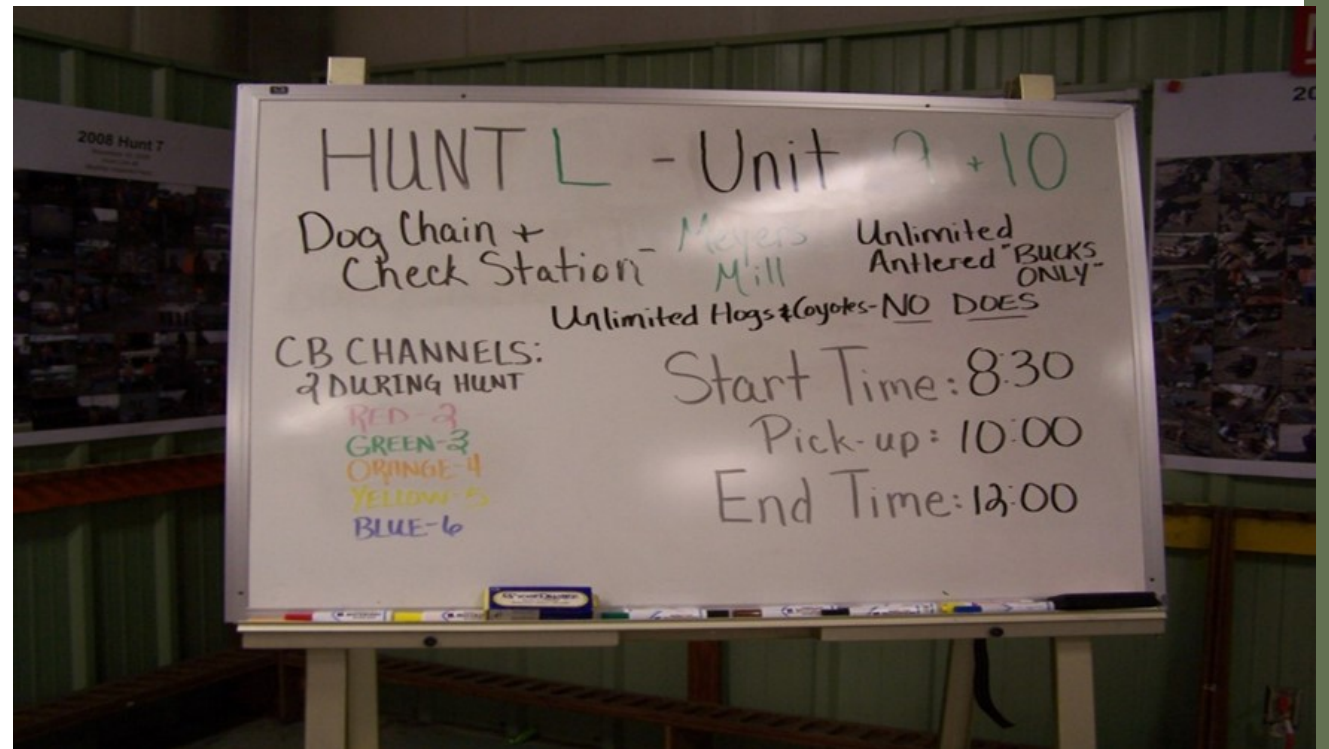 2008 Hunt 7
20
HUNT L - Unit 9 + 10
Dog Chain +
Check Station -
Meyers
Mill
Unlimited
Antlered "BUCKS
ONLY"
Unlimited Hogs & Coyotes - NO DOES
CB CHANNELS:
2 DURING HUNT
RED-2
GREEN-3
ORANGE-4
YELLOW-5
BLUE-6
Start Time: 8:30
Pick-up: 10:00
End Time: 12:00